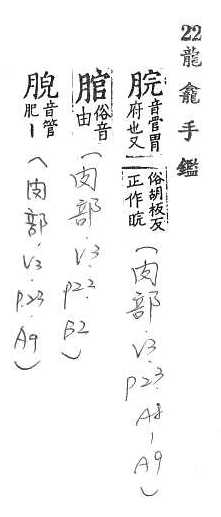 22龍龕手鑑
脘 音管胃府也又 俗胡板反正作睆 (肉部.V3.P23.A8-A9)
俗音由 (肉部.V3.P22.B2)
音管肥丨 (肉部.V3.P.23.A9)